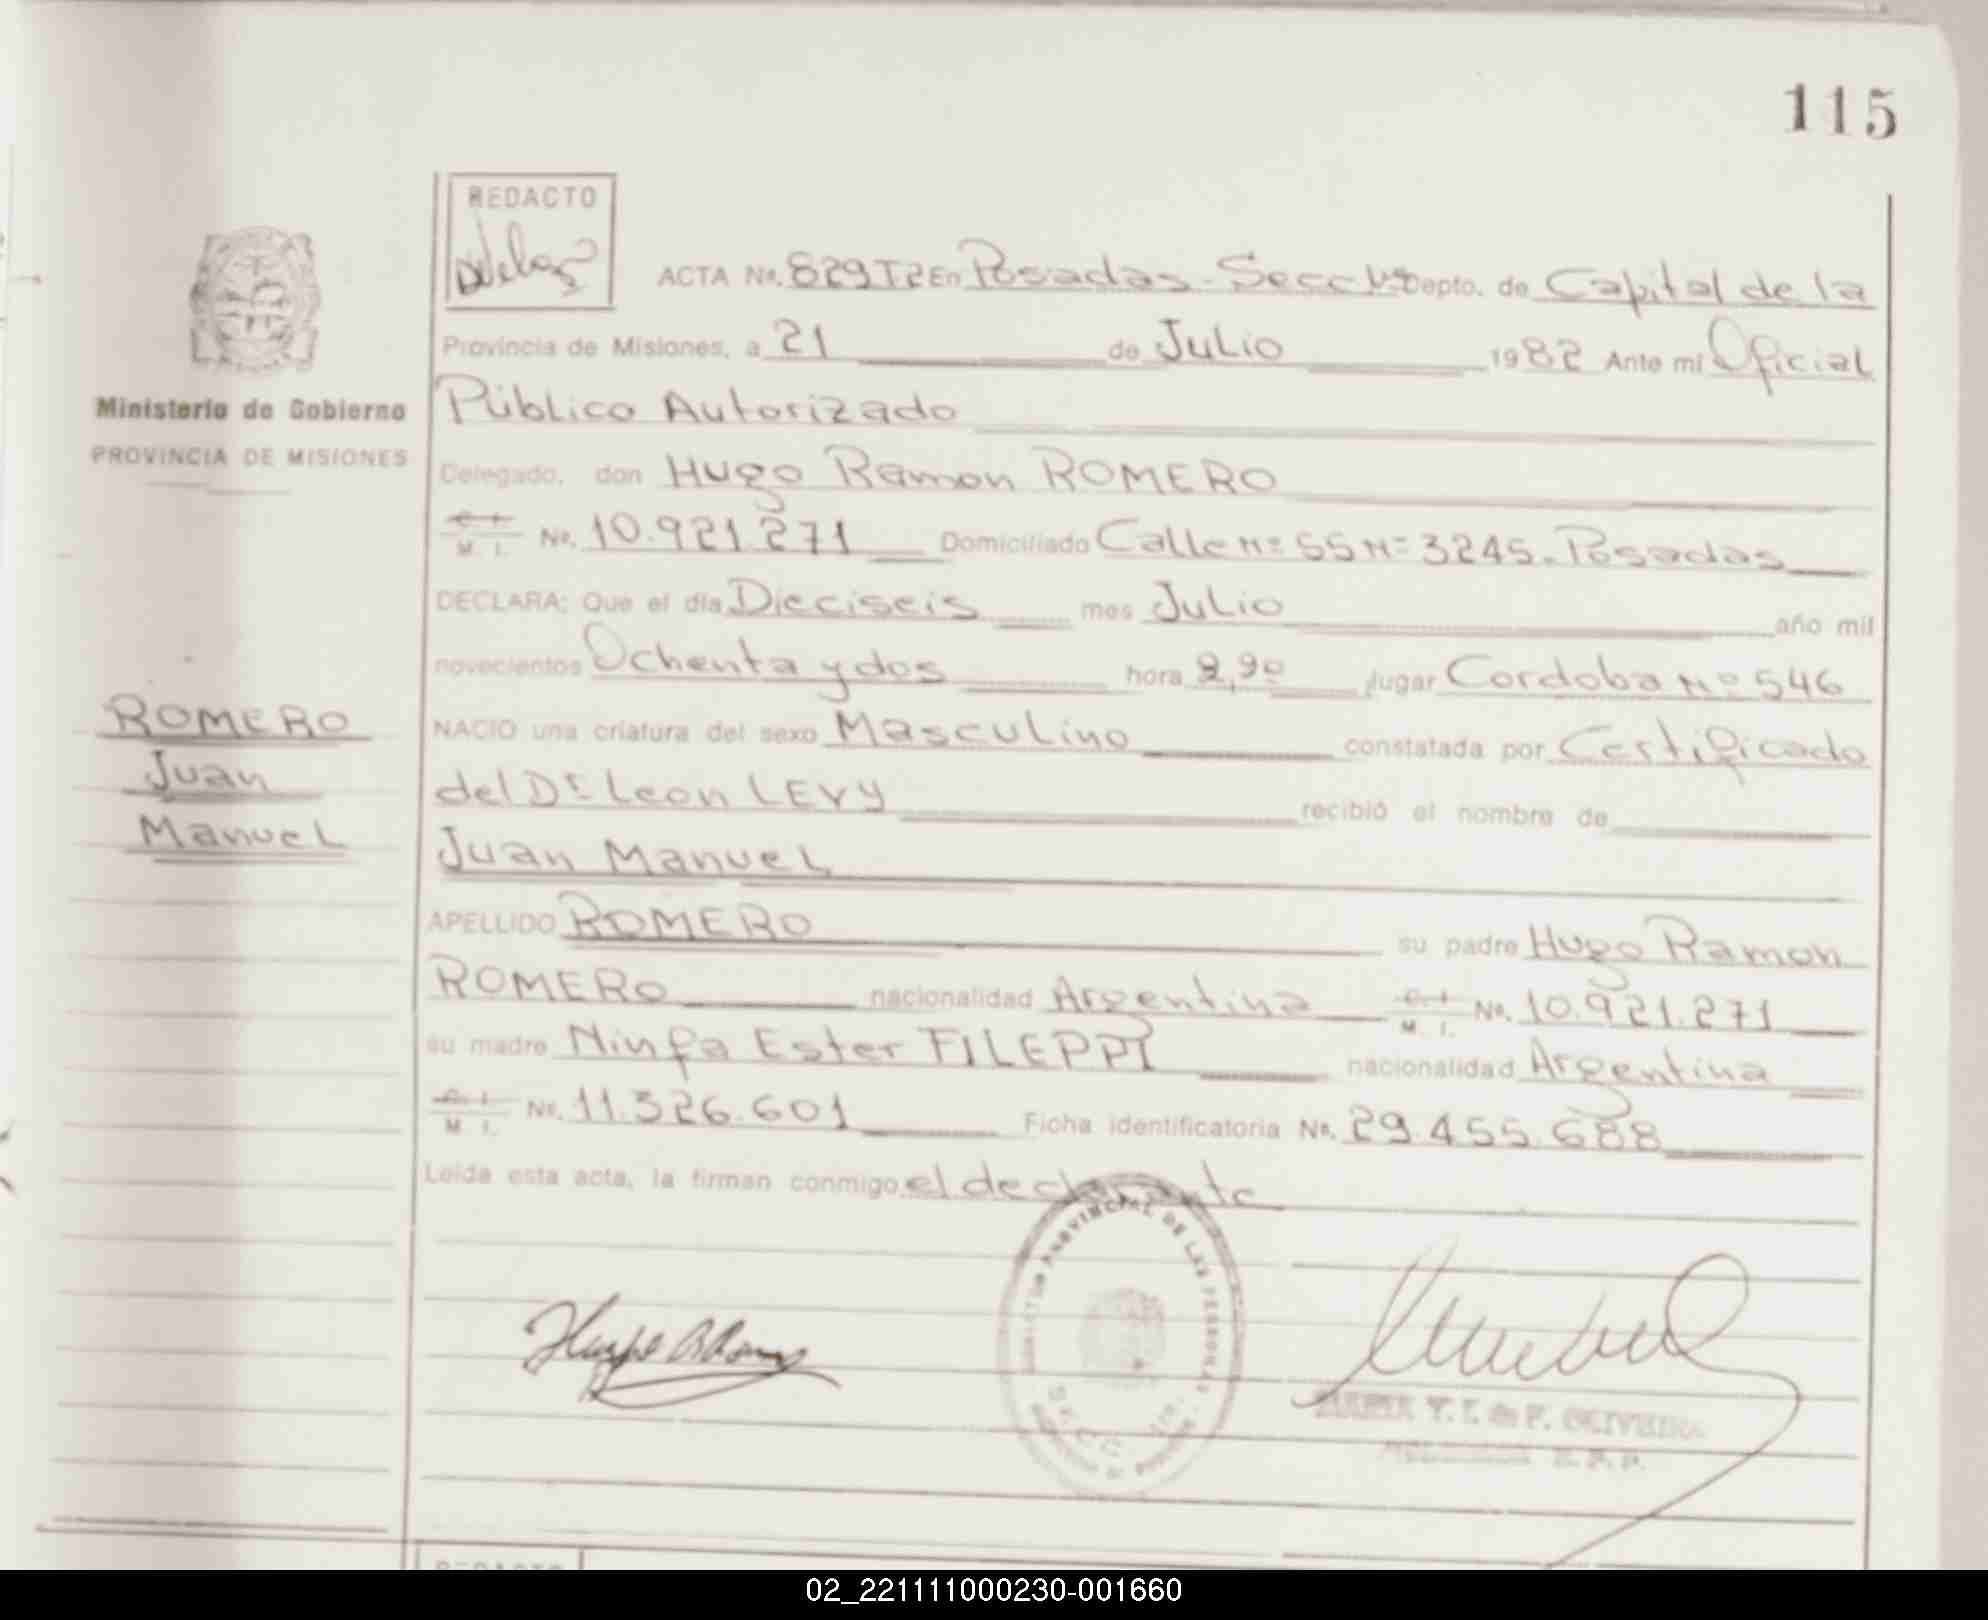 115
REDACTO
ACTA No. 829 T2 En Posadas - Secc 1ra Depto. de Capital de la
Provincia de Misiones, a 21 de Julio 1982 Ante mi Oficial
Ministerio de Gobierno
PROVINCIA DE MISIONES
Público Autorizado
Delegado, don Hugo Ramon ROMERO
C. I. M. I. No. 10.921.271 Domiciliado Calle Nº 55 Nº 3245. Posadas
DECLARA: Que el día Dieciseis mes Julio año mil
novecientos Ochenta y dos hora lugar Cordoba Nº 546
ROMERO
Juan
Manuel
NACIO una criatura del sexo Masculino constatada por Certificado
del Dr Leon LEVY recibió el nombre de
Juan Manuel
APELLIDO ROMERO su padre Hugo Ramon
ROMERO nacionalidad Argentina C. I. M. I. No. 10.921.271
su madre Ninfa Ester FILEPPI nacionalidad Argentina
C. I. M. I. No. 11.326.601 Ficha identificatoria No. 29.455.688
Leída esta acta, la firman conmigo el declarante
PROVINCIAL DE LAS PERSONAS
SECC.
T. I. de F. OLIVEIRA
REDACTO
02_221111000230-001660